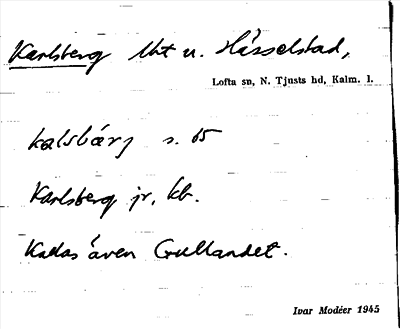 Karlsberg lht u. Hässelstad,
Lofta sn, N. Tjusts hd, Kalm. l.
kalsbárj s. 65
Karlsberg jr, kb.
Kallas även Gullandet.
Ivar Modéer 1945